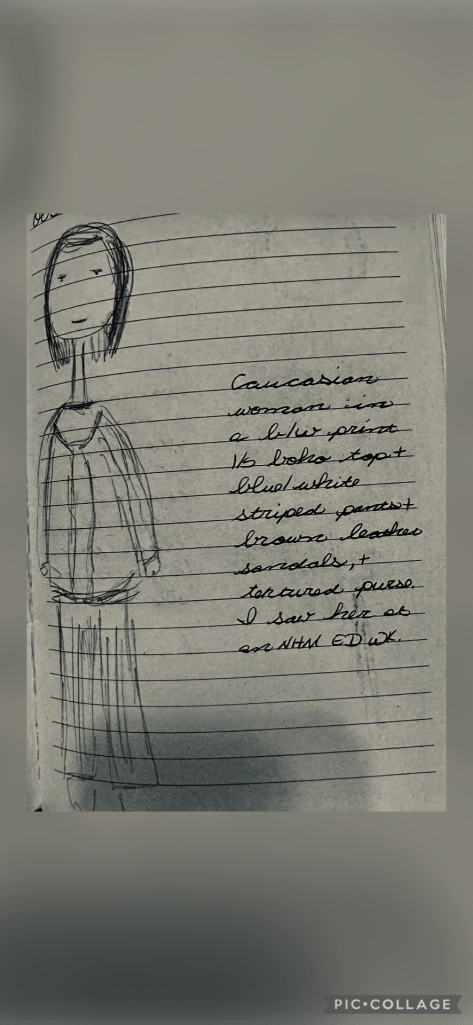 Caucasian
woman in
a b/w print
l/s boho top +
blue/white
striped pants +
brown leather
sandals, +
textured purse.
I saw her at
an NHM ED wk.
PIC•COLLAGE